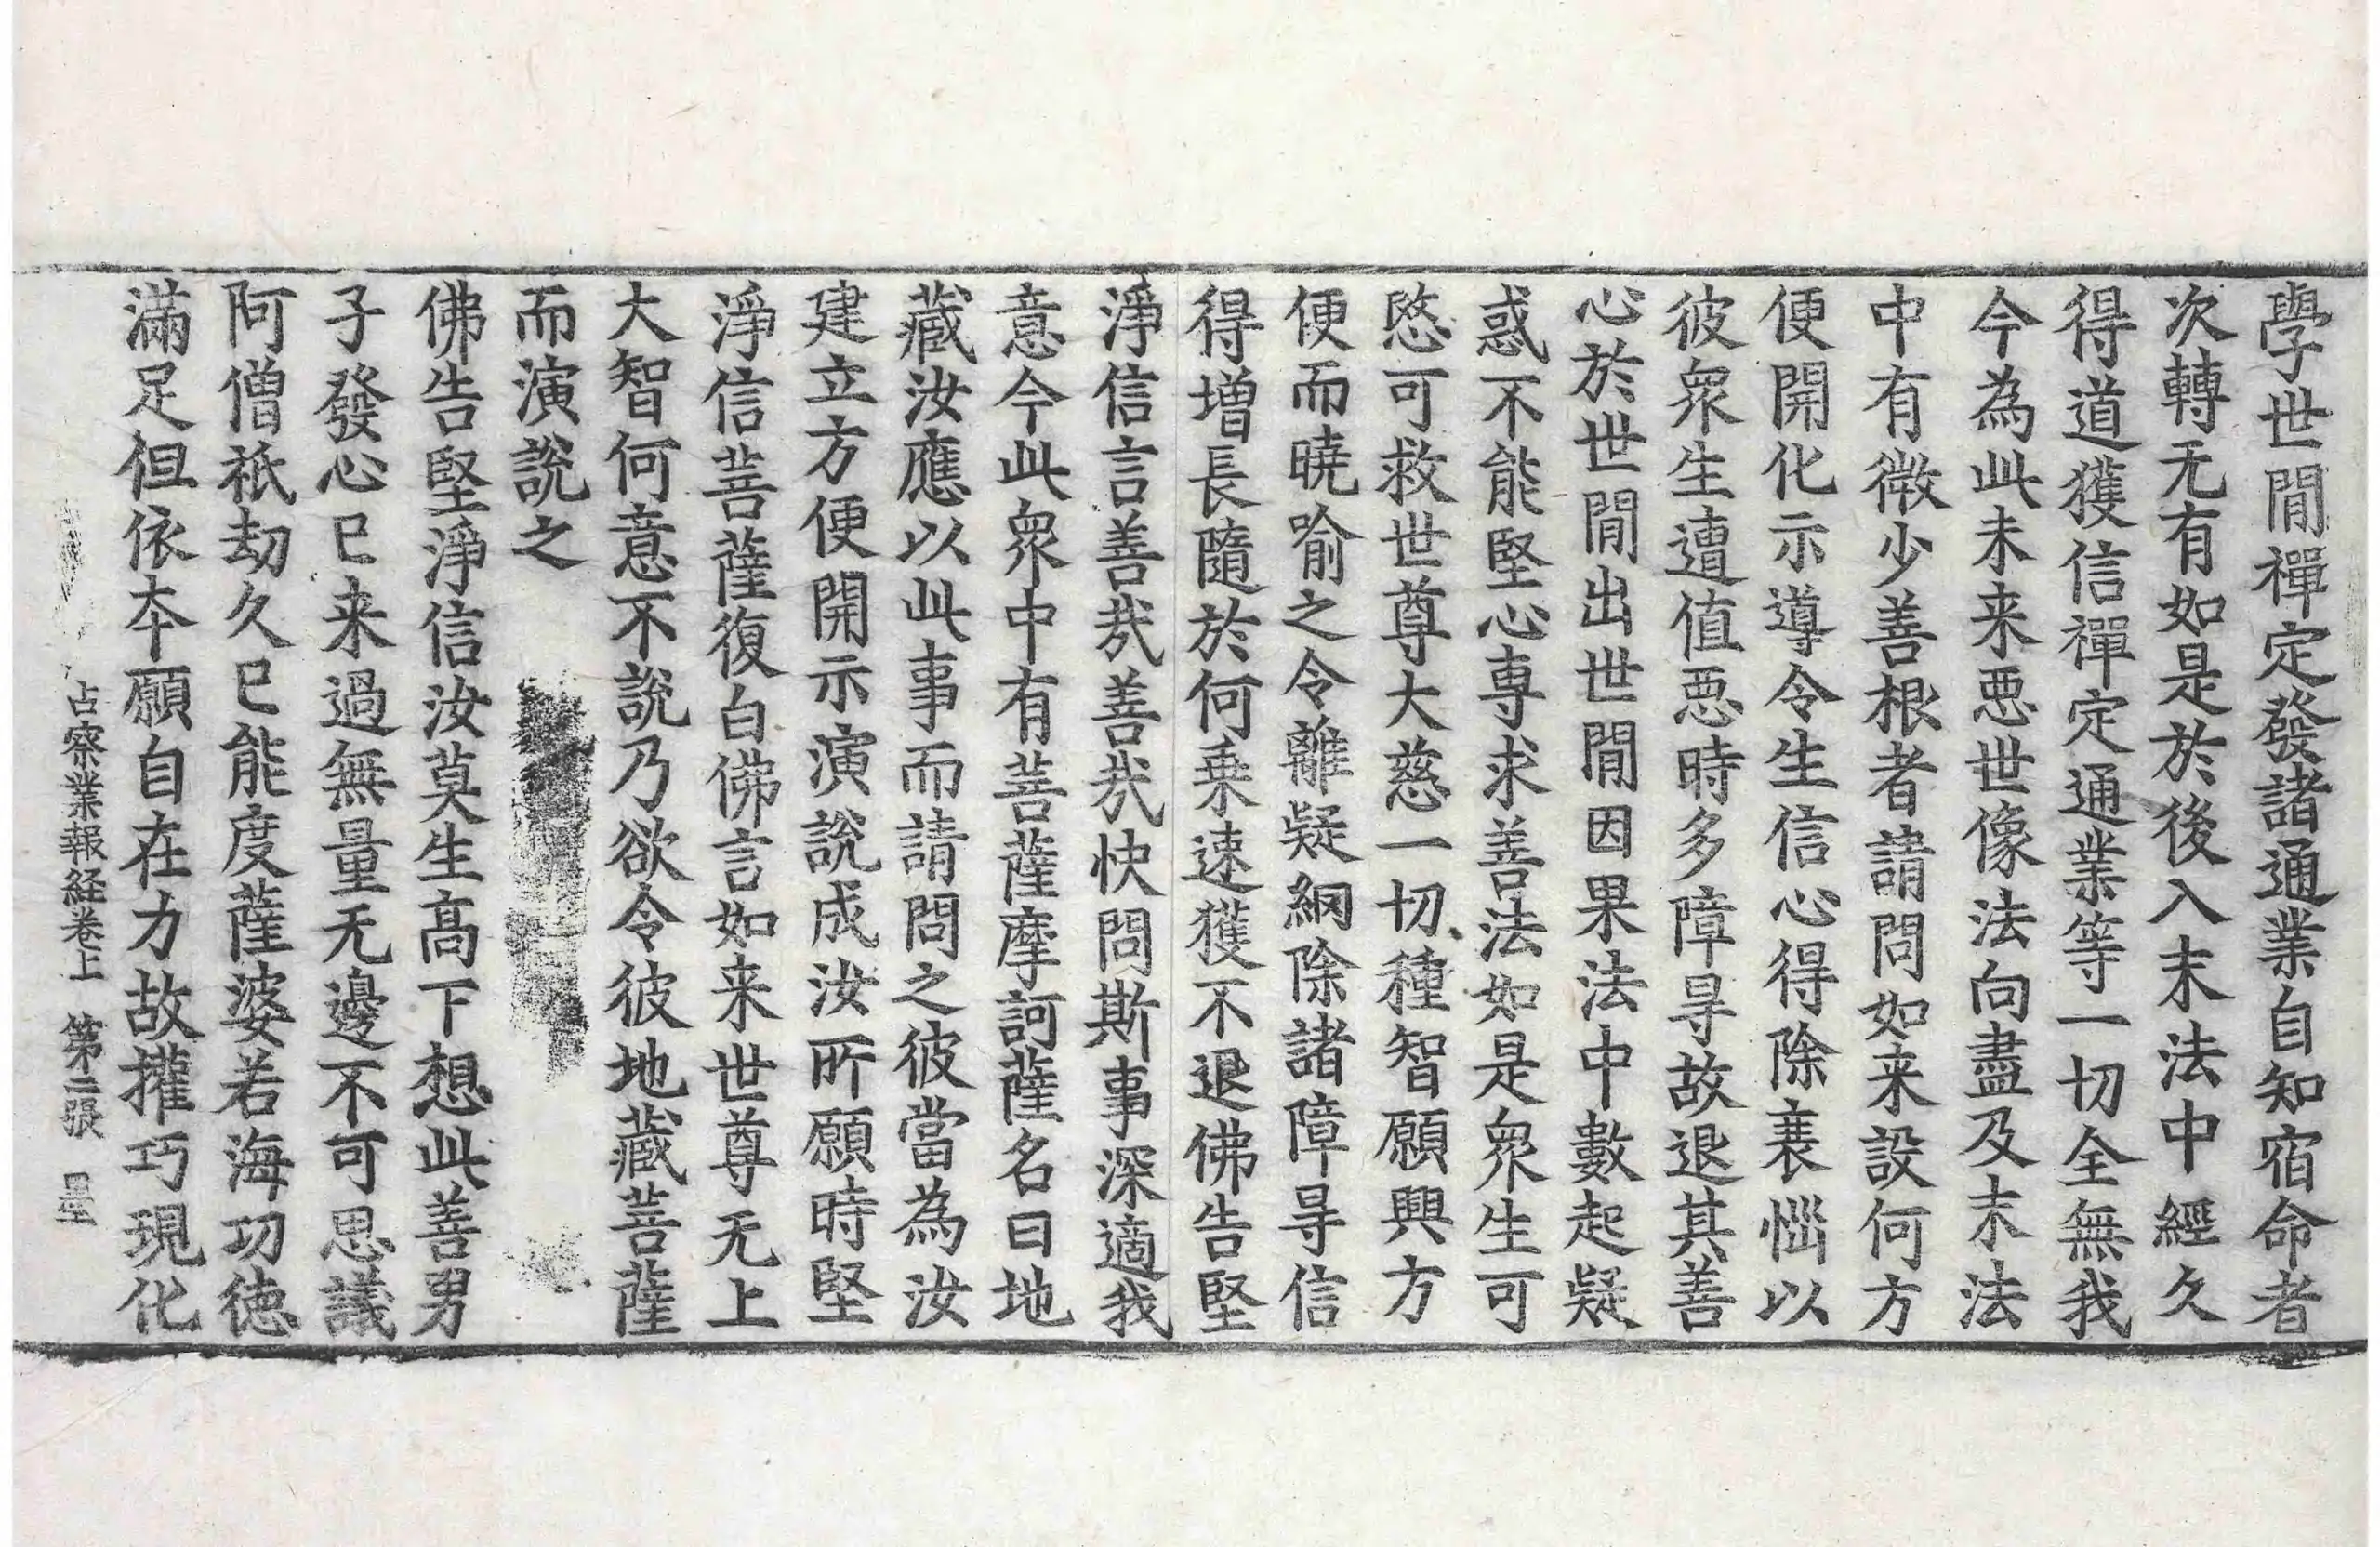 學世間禪定發諸通業自知宿命者
次轉无有如是於後入末法中經久
得道獲信禪定通業等一切全無我
今為此未来惡世像法向盡及末法
中有微少善根者請問如来設何方
便開化示導令生信心得除衰惱以
彼衆生遭值惡時多障㝵故退其善
心於世間出世間因果法中數起疑
惑不能堅心專求善法如是衆生可
愍可救世尊大慈一切種智願興方
便而曉喻之令離疑網除諸障㝵信
得增長隨於何乗速獲不退佛告堅
淨信言善㢤善㢤快問斯事深適我
意今此衆中有菩薩摩訶薩名曰地
藏汝應以此事而請問之彼當為汝
建立方便開示演說成汝所願時堅
淨信菩薩復白佛言如来世尊无上
大智何意不說乃欲令彼地藏菩薩
而演說之
佛告堅淨信汝莫生高下想此善男
子發心已来過無量无邊不可思議
阿僧祇劫久已能度薩婆若海功德
滿足但依本願自在力故權巧現化
占察業報経卷上 第二張 量